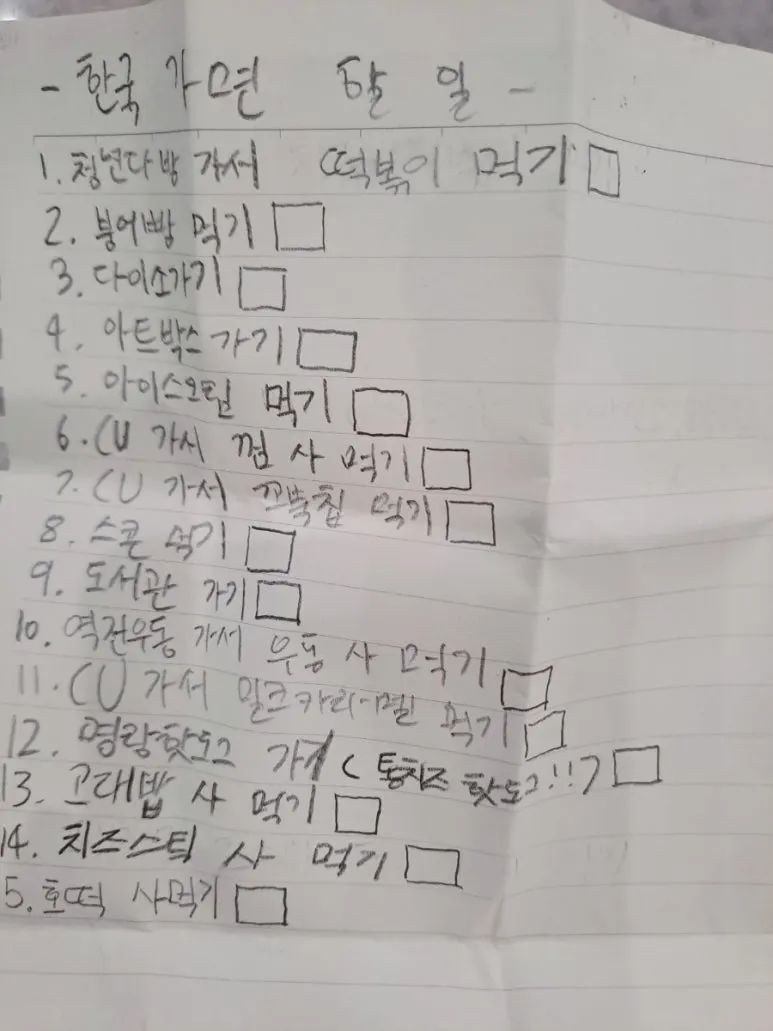 - 한국 가면 할 일 -
1. 청년다방 가서 떡볶이 먹기
2. 붕어빵 먹기
3. 다이소가기
4. 아트박스 가기
5. 아이스오팀 먹기
6. CU 가서 껌 사 먹기
7. CU 가서 꼬북칩 먹기
8. 스콘 먹기
9. 도서관 가기
10. 역전우동 가서 우동 사 먹기
11. CU 가서 밀크카라멜 먹기
12. 명랑핫도그 가기 (통치즈 핫도그!!)
13. 고대밥 사 먹기
14. 치즈스틱 사 먹기
5. 호떡 사먹기